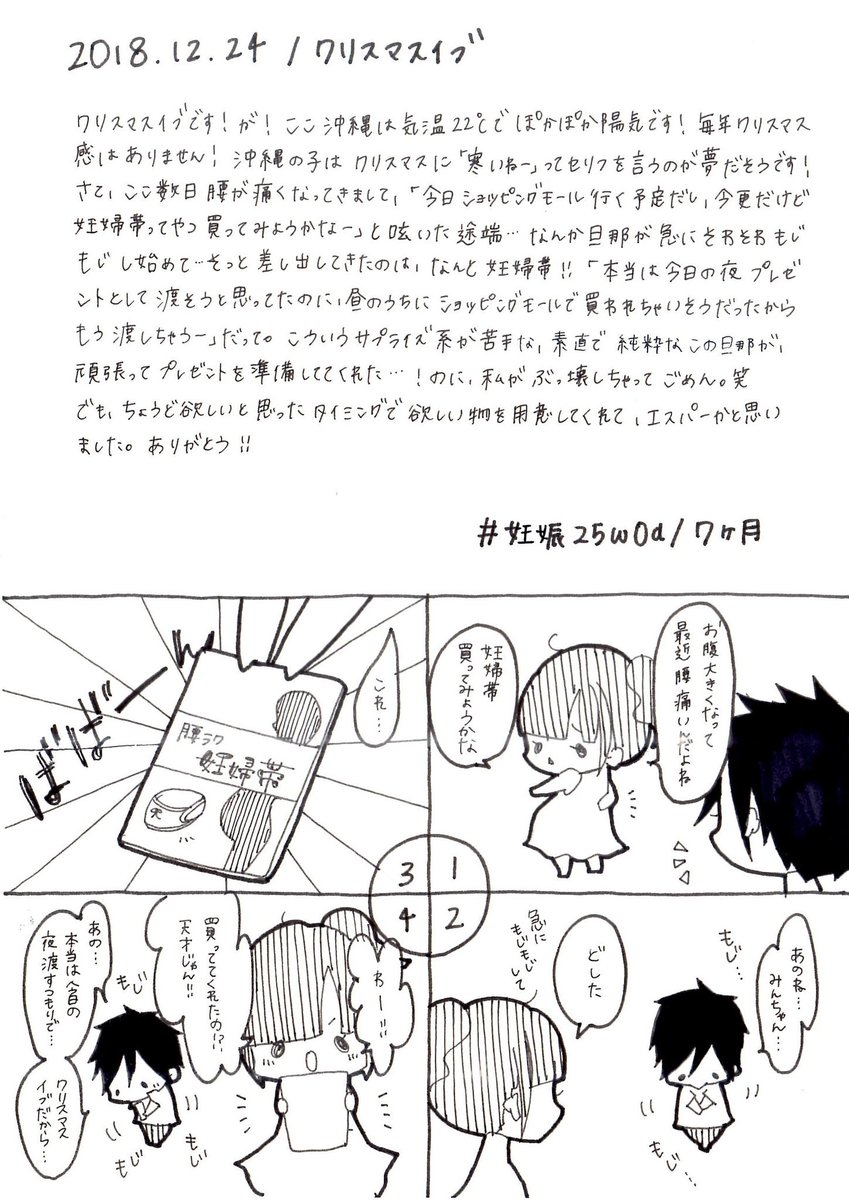 2018.12.24 / クリスマスイブ
クリスマスイブです!が!ここ沖縄は気温22℃でぽかぽか陽気です!毎年クリスマス
感はありません!沖縄の子はクリスマスに「寒いねー」ってセリフを言うのが夢だそうです!
さて、ここ数日腰が痛くなってきまして、「今日ショッピングモール行く予定だし、今更だけど
妊婦帯ってやつ買ってみようかなー」と呟いた途端…なんか旦那が急にそわそわもじ
もじし始めて…そっと差し出してきたのは、なんと妊婦帯!!「本当は今日の夜プレゼ
ントとして渡そうと思ってたのに、昼のうちにショッピングモールで買われちゃいそうだったから
もう渡しちゃうー」だって。こういうサプライズ系が苦手な、素直で純粋なこの旦那が、
頑張ってプレゼントを準備しててくれた…!のに、私がぶっ壊しちゃってごめん。笑
でも、ちょうど欲しいと思ったタイミングで欲しい物を用意してくれて、エスパーかと思い
ました。ありがとう!!
#妊娠25w0d/7ヶ月
お腹大きくなって
最近腰痛いんだよね
妊婦帯
買ってみようかな
1
あのね…
みんちゃん…
もじ…
もじ
どした
急に
もじもじ
して
2
これ…
ばばーん
腰ラク
妊婦帯
3
わー!!
買っててくれたの!?
天才じゃん!!
あの…
本当は今日の
夜渡すつもりで…
クリスマス
イブだから…
もじ
もじ
もじ
4